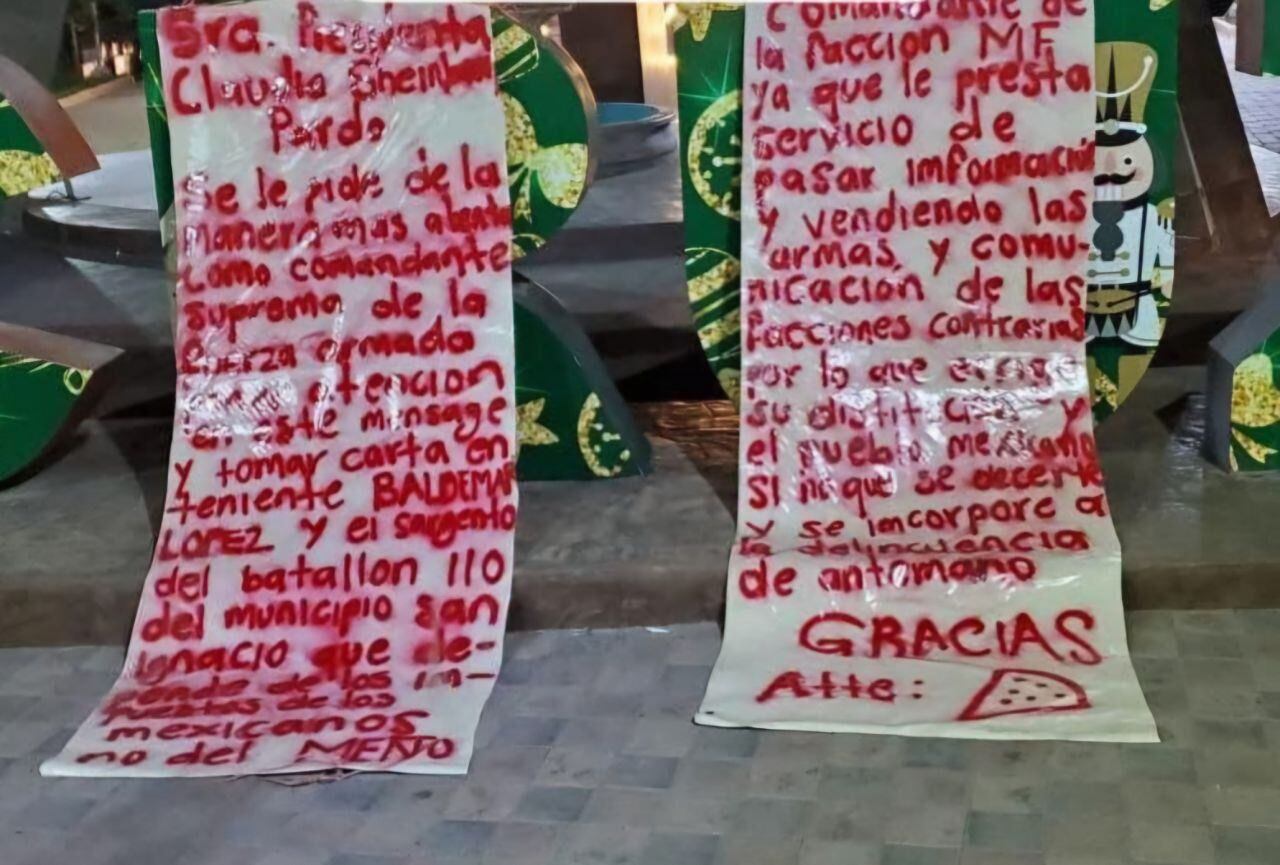 Sra. Presidenta
Claudia Sheinbaum
Pardo
Se le pide de la
manera mas atenta
como comandante
suprema de la
fuerza armada
atencion
en este mensage
y tomar carta en
teniente BALDEMAR
LOPEZ y el sargento
del batallon 110
del municipio san
ignacio que de-
pende de los im-
puestos de los
mexicanos
no del MENTO
Comandante de
la faccion MF
ya que le presta
servicio de
pasar información
y vendiendo las
armas, y comu-
nicación de las
facciones contrarias
por lo que exsige
su distit y
el pueblo mexicano
si no que se decerte
y se incorpore a
la delincuencia
de antomano
GRACIAS
Atte: